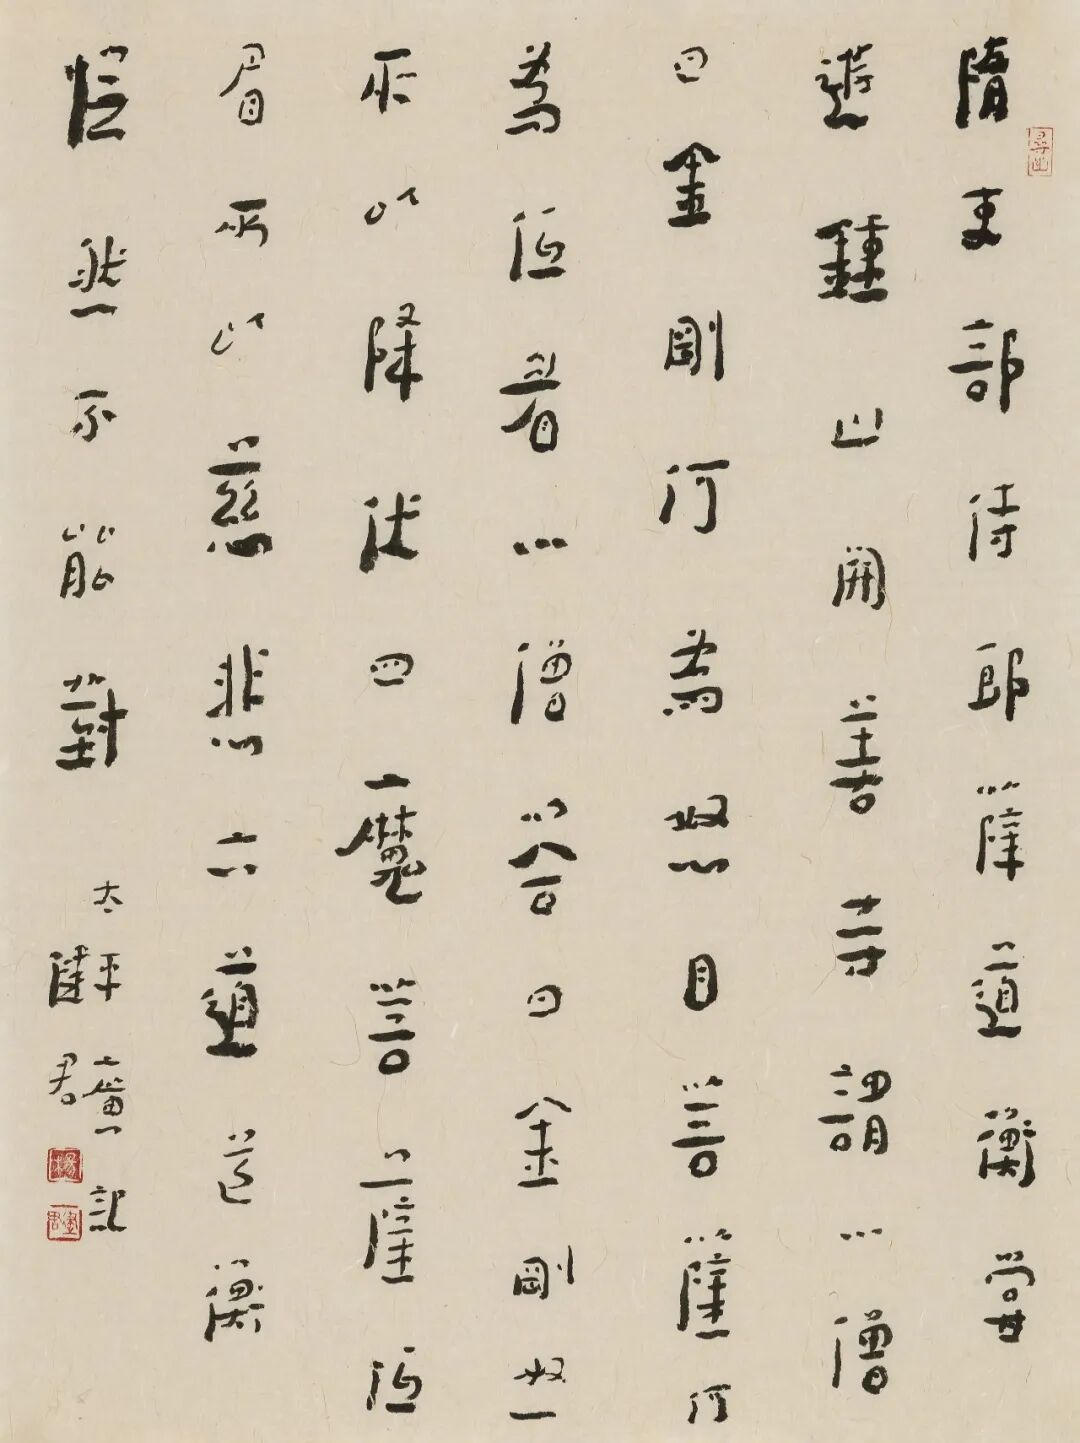 隋吏部侍郎薛道衡嘗
遊鍾山開善寺謂小僧
曰金剛何為怒目菩薩何
為低眉小僧答曰金剛怒
所以降伏四魔菩薩低
眉所以慈悲六道道衡
然不能對
太平廣記
君